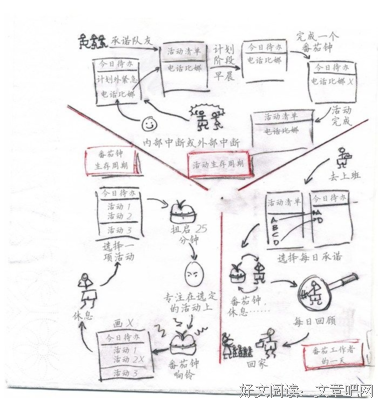 承诺队友
今日待办
计划外紧急
电话比娜
活动清单
电话比娜
计划
阶段
早晨
今日待办
电话比娜
完成一个
番茄钟
今日待办
电话比娜 X
活动
完成
活动清单
电话比娜
内部中断或外部中断
番茄钟
生存周期
活动生存周期
今日待办
活动 1
活动 2
活动 3
选择一
项活动
扭启 25
分钟
专注在选定
的活动上
番茄钟
响铃
画 X
今日待办
活动 1
活动 2X
活动 3
休息
去上班
活动清单
A
B
C
D
今日待办
A
D
选择每日承诺
番茄钟
休息……
每日回顾
回家
番茄工作者
的一天
好文阅读—文章吧网